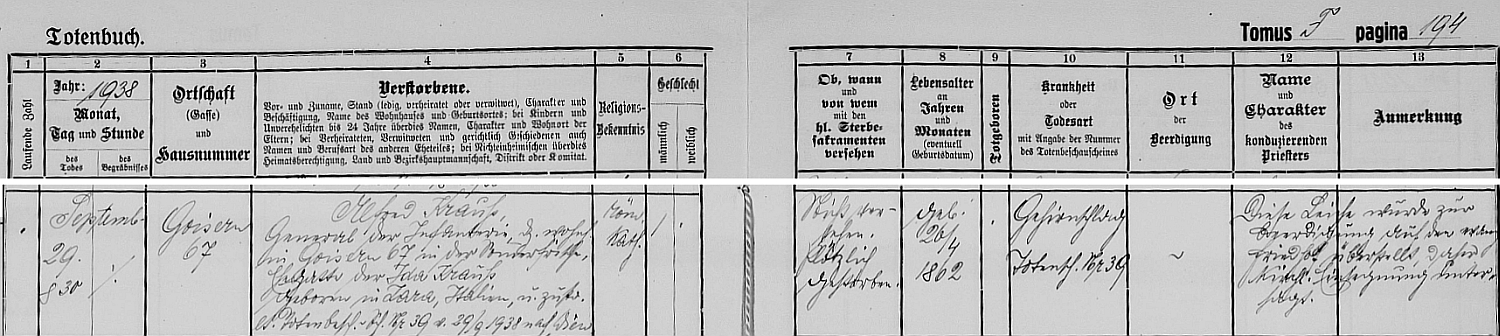 Totenbuch.
Tomus F pagina 194
1
2
3
4
5
6
7
8
9
10
11
12
13
Laufende Zahl
Jahr: 1938
Monat,
Tag und Stunde
des Todes
des Begräbnisses
Ortschaft
(Gasse)
und
Hausnummer
Verstorbene.
Vor- und Zuname, Stand (ledig, verheiratet oder verwitwet), Charakter und
Beschäftigung, Name des Wohnhauses und Geburtsortes; bei Kindern und
Unverehelichten bis 24 Jahre überdies Namen, Charakter und Wohnort der
Eltern; bei Verheirateten, Verwitweten und gerichtlich Geschiedenen auch
Namen und Berufsart des anderen Eheteiles; bei Nichteinheimischen überdies
Heimatsberechtigung, Land und Bezirkshauptmannschaft, Distrikt oder Komitat.
Religions-
Bekenntnis
Geschlecht
männlich
weiblich
Ob, wann
und
von wem
mit den
hl. Sterbe-
sakramenten
versehen
Lebensalter
an
Jahren
und
Monaten
(eventuell
Geburtsdatum)
Totgeboren
Krankheit
oder
Todesart
mit Angabe der Nummer
des Totenbeschauscheines
Ort
der
Beerdigung
Name
und
Charakter
des
konduzierenden
Priesters
Anmerkung
Septemb.
29.
8 30
Goisern
67
Alfred Krauß,
General der Infanterie, d. wohnh.
in Goisern 67 in der
Ehegatte der Ida Krauß
Geboren in Zara, Italien, u. zust.
Nr 39 v. 29/9 1938 nach Wien
Röm.
kath.
1
Nicht ver-
sehen.
Plötzlich
gestorben.
geb.
26/4
1862
Gehirnschlag
Totensch. Nr 39
~
Diese Leiche wurde zur
Beerdigung auf den evan.
Friedhf. überstellt, daher
kirchl. Einsegnung unter-
sagt.